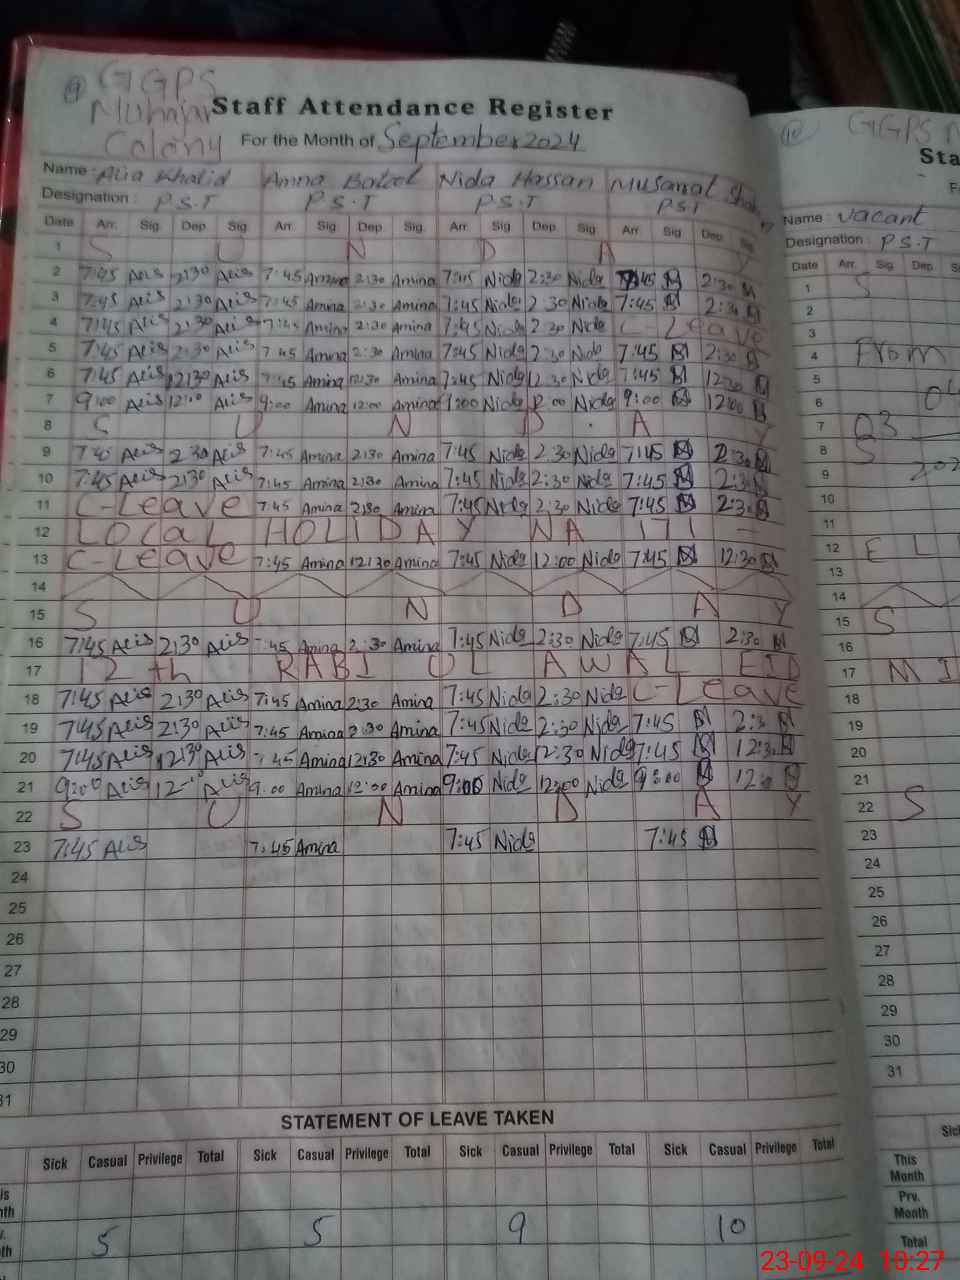 9 GGPS
Muhajar
Colony
Staff Attendance Register
For the Month of September 2024
Name: Alia Khalid Amna Batool Nida Hassan Musarrat
Designation: P.S.T P.S.T P.S.T P.S.T
Date Arr. Sig. Dep. Sig. Arr. Sig. Dep. Sig. Arr. Sig. Dep. Sig. Arr. Sig. Dep. Sig.
1 S U N D A Y
2 7:45 2:30 7:45 Amina 2:30 Amina 7:45 Nida 2:30 Nida 7:45 2:30
3 7:45 2:30 7:45 Amina 2:30 Amina 7:45 Nida 2 30 Nida 7:45 2:30
4 7:45 2:30 7:45 Amina 2:30 Amina 7:45 Nida 2 30 Nida C-Leave
5 7:45 2:30 7 45 Amina 2:30 Amina 7:45 Nida 2 30 Nida 7:45 2:30
6 7:45 12:30 7:45 Amina 12:30 Amina 7:45 Nida 12:30 Nida 7:45 12:30
7 9:00 12:00 9:00 Amina 12:00 Amina Nida Nida 9:00 12:00
8 S U N D A Y
9 7:45 2:30 7:45 Amina 2:30 Amina 7:45 Nida 2:30 Nida 7:45 2:30
10 7:45 2:30 7:45 Amina 2:30 Amina 7:45 Nida 2:30 Nida 7:45 2:30
11 C-Leave 7:45 Amina 2:30 Amina 7:45 Nida 2:30 Nida 7:45 2:30
12 LOCAL HOLIDAY NA 171
13 C-Leave 7:45 Amina 12:30 Amina 7:45 Nida 12:00 Nida 7:45 12:30
14
15 S U N D A Y
16 7:45 2:30 7:45 Amina 2:30 Amina 7:45 Nida 2:30 Nida 7:45 2:30
17 12th RABI UL AWAL EID
18 7:45 2:30 7:45 Amina 2:30 Amina 7:45 Nida 2:30 Nida C-Leave
19 7:45 2:30 7:45 Amina 2:30 Amina 7:45 Nida 2:30 Nida 7:45 2:30
20 7:45 12:30 7:45 Amina 12:30 Amina 7:45 Nida 12:30 Nida 7:45 12:30
21 9:00 9:00 Amina 12:00 Amina 9:00 Nida 12:00 Nida 9:00
22 S U N D A Y
23 7:45 7:45 Amina 7:45 Nida 7:45
24
25
26
27
28
29
30
31
STATEMENT OF LEAVE TAKEN
Sick Casual Privilege Total Sick Casual Privilege Total Sick Casual Privilege Total Sick Casual Privilege Total
5 5 9 10
10 GGPS
Sta
Name: Vacant
Designation: P.S.T
Date Arr. Sig. Dep.
1 S
2
3
4 From
5
6 04
7 03
8 S
9
10
11
12 E L
13
14
15 S
16
17 M I
18
19
20
21
22 S
23
24
25
26
27
28
29
30
31
Sick
This
Month
Prv.
Month
Total
23-09-24 10:27